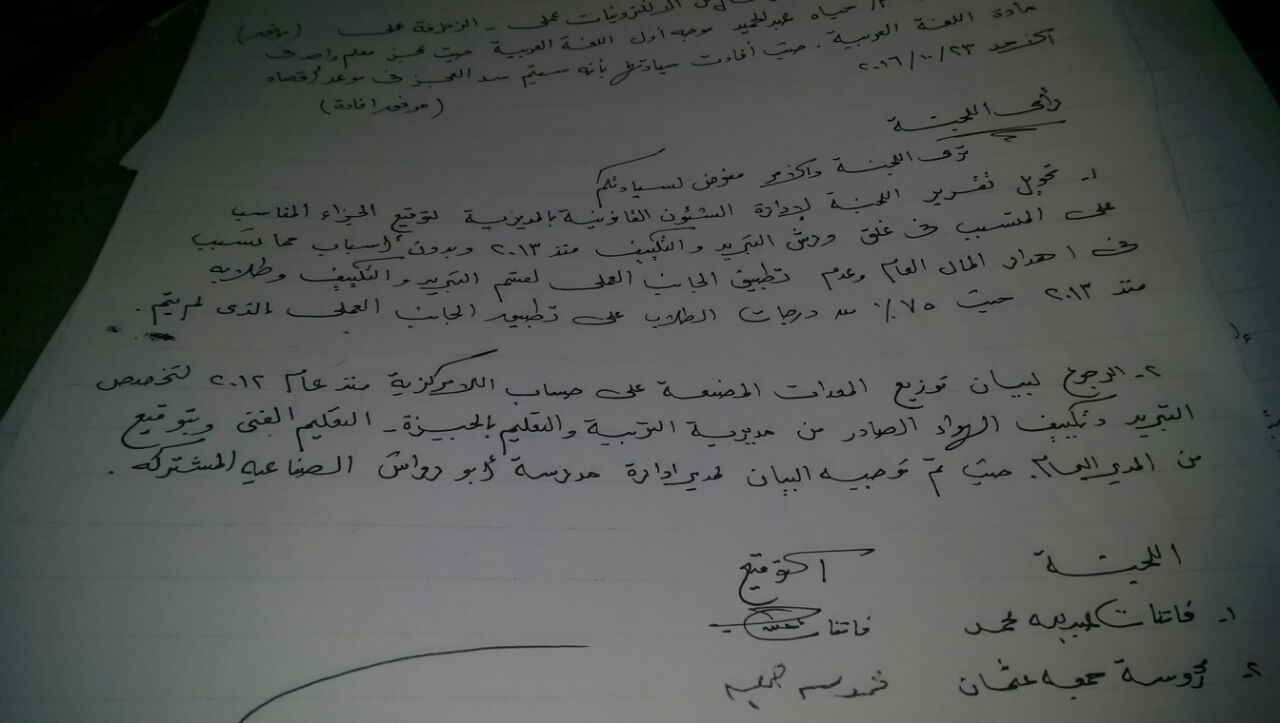 الالكترونيات عملى - الزخرفة عملى (مرفق)
م/ حياه عبدالحميد موجه أول اللغة العربية حيث عجز معلم واحد فى
مادة اللغة العربية. حيث أفادت سيادتها بأنه سيتم سد العجز فى موعد أقصاه
الأحد ٢٣/١٠/٢٠١٦ (مرفق إفادة)
رأى اللجنة
ترى اللجنة والأمر مفوض لسيادتكم
١- تحويل تقرير اللجنة لإدارة الشئون القانونية بالمديرية لتوقيع الجزاء المناسب
على المتسبب فى غلق ورش التبريد والتكييف منذ ٢٠١٣ وبدون أسباب مما تسبب
فى اهدار المال العام وعدم تطبيق الجانب العملى لقسم التبريد والتكييف وطلابه
منذ ٢٠١٣ حيث ٧٥٪ من درجات الطلاب على تطبيق الجانب العملى الذى لم يتم.
٢- الرجوع لبيان توزيع المعدات المصنعة على حساب اللامركزية منذ عام ٢٠١٢ لتخصص
التبريد وتكييف الهواء الصادر من مديرية التربية والتعليم بالجيزة - التعليم الفنى وبتوقيع
من المدير العام. حيث تم توجيه البيان لمدير ادارة مدرسة أبو رواش الصناعيه المشتركه.
اللجنة التوقيع
١- فاتنات محمد فاتنات
٢- جمعه عثمان